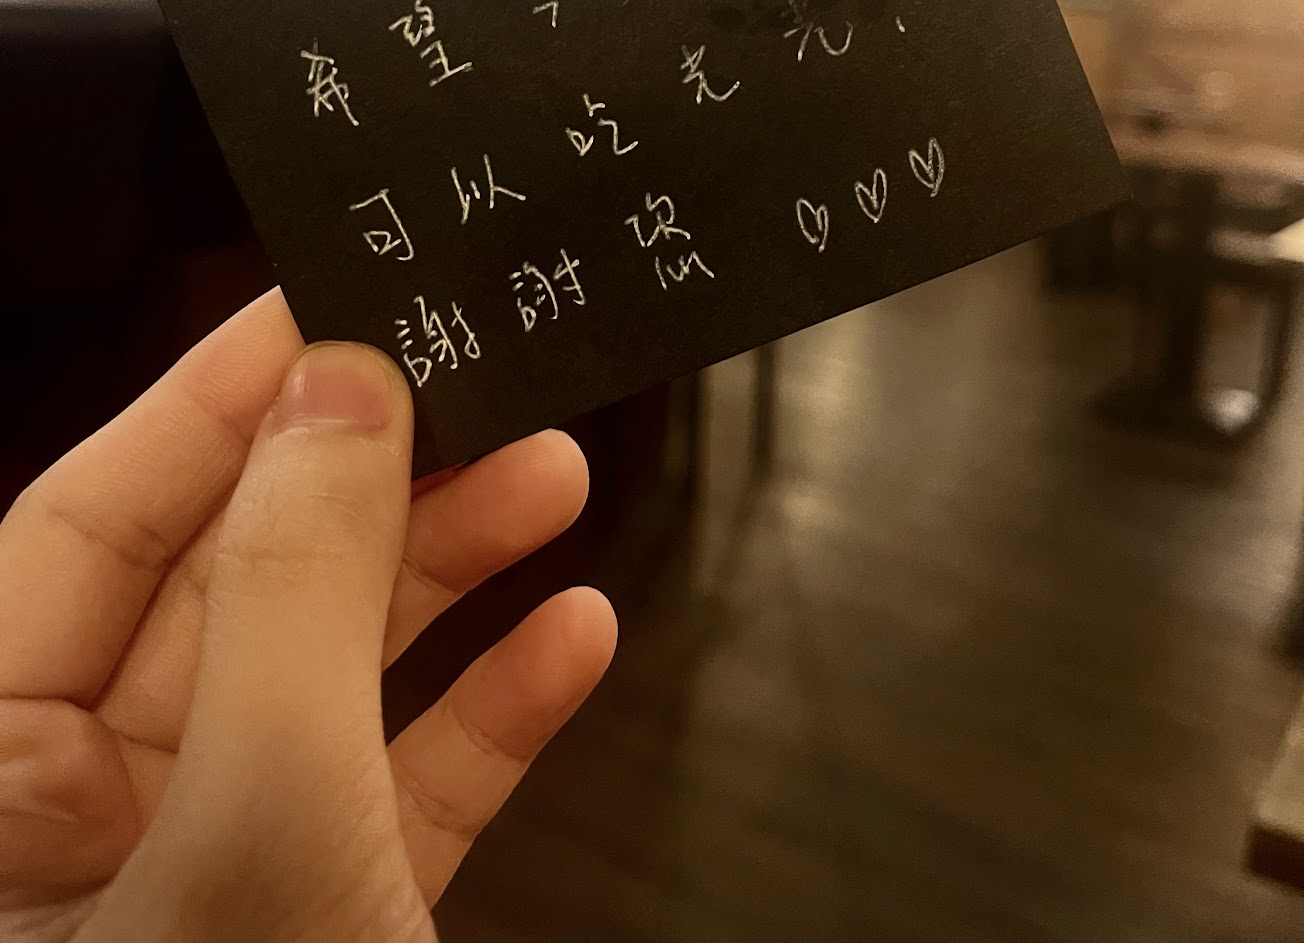 希望
可以吃光光!
謝謝您 ♡♡♡